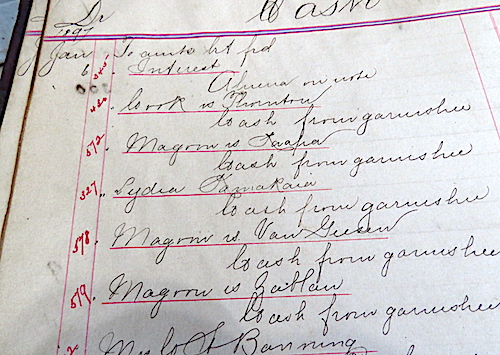 Dr Cash
1897
Jan To amts bt fd
6 343 Interest
Ahuena on note
430 Cook vs Thornton
Cash from garnishee
572 Magoon vs Kaapa
Cash from garnishee
327 " Lydia Kamakaia
Cash from garnishee
578. Magoon vs Van Giesen
Cash from garnishee
579. Magoon vs Zablan
Cash from garnishee
2 Banning